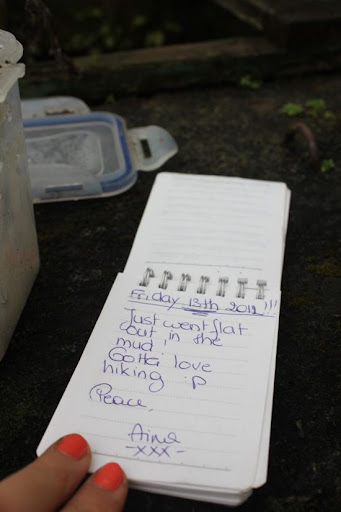 Friday 13th 2012 !!!
Just went flat
out in the
mud,
Gotta love
hiking :p
Peace,
-xxx-